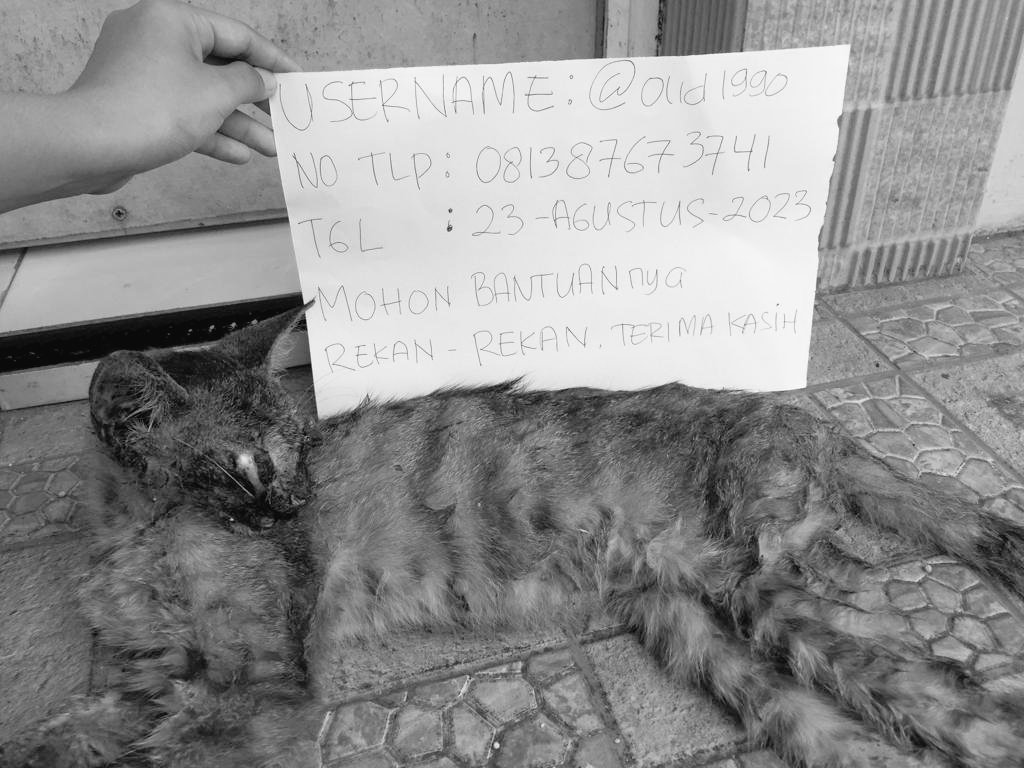 USERNAME: @olid1990
NO TLP: 081387673741
TGL : 23-AGUSTUS-2023
MOHON BANTUANnya
REKAN-REKAN. TERIMA KASIH